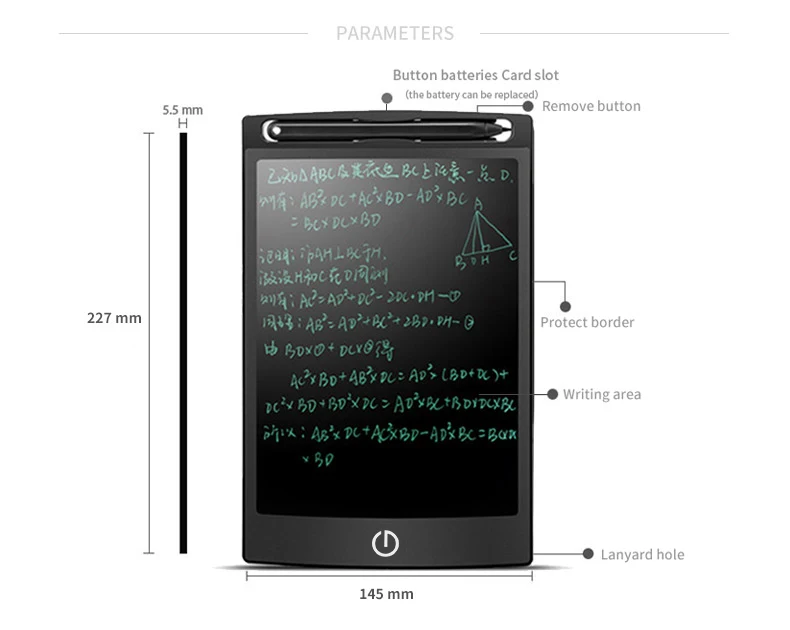 PARAMETERS
Button batteries Card slot
(the battery can be replaced)
5.5 mm
Remove button
已知△ABC及其底边BC上任意一点D.
则有: AB²×DC+AC²×BD-AD²×BC
=BC×DC×BD
A
B D H C
证明: 作AH⊥BC于H.
假设H和C在D同侧
则有: AC²=AD²+DC²-2DC·DH—①
同理: AB²=AD²+BC²+2BD·DH-②
由 BD×①+DC×②得
AC²×BD+AB²×DC=AD²×(BD+DC)+
DC²×BD+BD²×DC=AD²×BC+BD×DC×BC
所以: AB²×DC+AC²×BD-AD²×BC=BC×
×BD
227 mm
Protect border
Writing area
Lanyard hole
145 mm